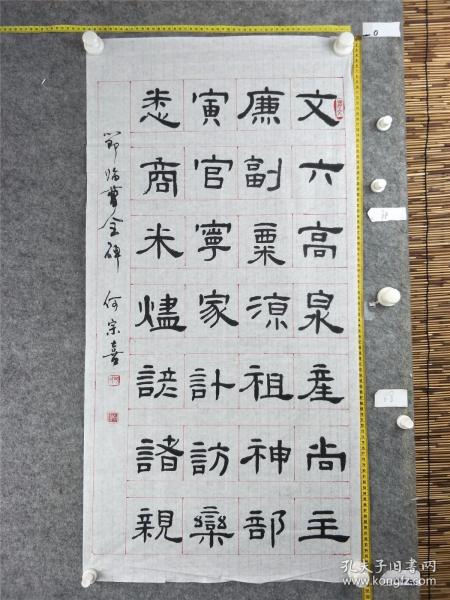 文六高泉産尚主
廉副粟涼祖神部
寅官寧家計訪欒
悉商米燼諺諸親
節臨曹全碑 何宗喜
孔夫子旧书网
www.kongfz.com